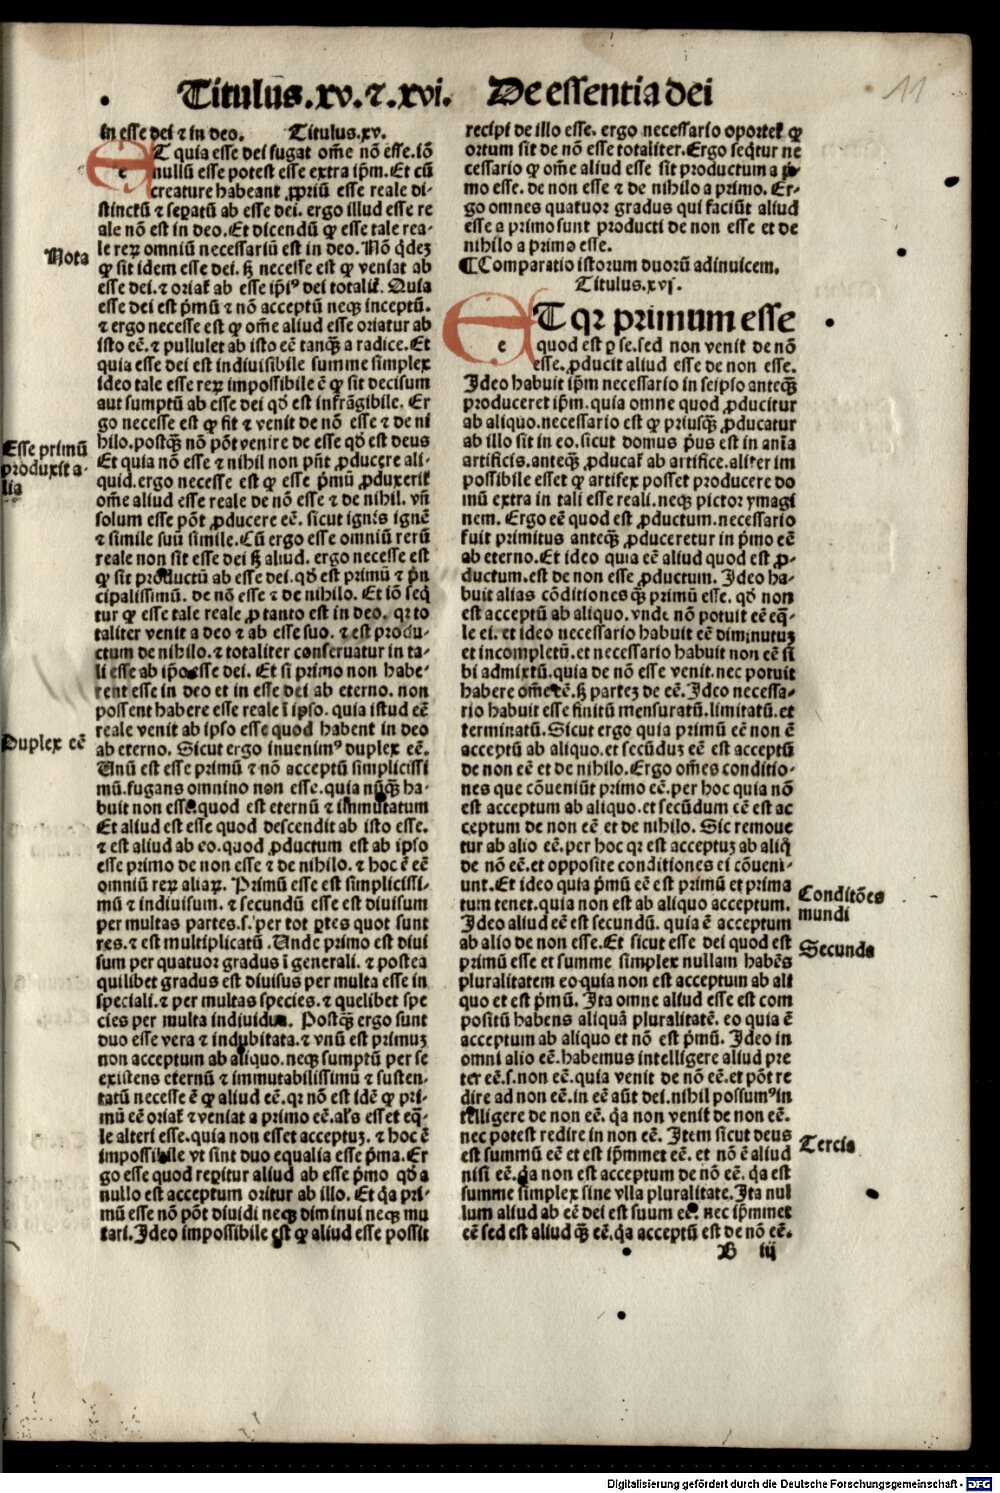 11
Titulus.xv.⁊.xvi. De essentia dei
in esse dei ⁊ in deo. Titulus.xv.
ET quia esse dei fugat om̄e nō esse.iō
e nullū esse potest esse extra ip̄m. Et cū
creature habeant ꝓpriū esse reale di-
stinctū ⁊ seꝑatū ab esse dei. ergo illud esse re
ale nō est in deo. Et dicendū ꝙ esse tale rea-
Nota
le reꝝ omniū necessariū est in deo. Nō q̄deꝫ
ꝙ sit idem esse dei. sꝫ necesse est ꝙ veniat ab
esse dei. ⁊ oriaꝉ ab esse ip̄iꝰ dei totaliꝉ. Quia
esse dei est p̄mū ⁊ nō acceptū neqꝫ inceptū.
⁊ ergo necesse est ꝙ om̄e aliud esse oriatur ab
isto eē. ⁊ pullulet ab isto eē tanqꝫ a radice. Et
quia esse dei est indiuisibile summe simplex
ideo tale esse reꝝ impossibile ē ꝙ sit decisum
aut sumptū ab esse dei qd̄ est infrāgibile. Er
go necesse est ꝙ fit ⁊ venit de nō esse ⁊ de ni
Esse primū
produxit a-
lia
hilo.postqꝫ nō pōt venire de esse qd̄ est deus
Et quia nō esse ⁊ nihil non pn̄t ꝓducere ali-
quid.ergo necesse est ꝙ esse p̄mū ꝓduxeriꝉ
om̄e aliud esse reale de nō esse ⁊ de nihil. vn̄
solum esse pōt ꝓducere eē. sicut ignis ignē
⁊ simile suū simile. Cū ergo esse omniū rerū
reale non sit esse dei sꝫ aliud. ergo necesse est
ꝙ sit productū ab esse dei. qd̄ est primū ⁊ p̄n
cipalissimū. de nō esse ⁊ de nihilo. Et iō seq̄
tur ꝙ esse tale reale ꝓ tanto est in deo. qꝛ to
taliter venit a deo ⁊ ab esse suo. ⁊ est produ-
ctum de nihilo. ⁊ totaliter conseruatur in ta-
li esse ab ip̄o esse dei. Et si primo non habe-
rent esse in deo et in esse dei ab eterno. non
possent habere esse reale ī ipso. quia istud eē
reale venit ab ipso esse quod habent in deo
Duplex eē
ab eterno. Sicut ergo inuenimꝰ duplex eē.
Unū est esse primū ⁊ nō acceptū simplicissi
mū.fugans omnino non esse.quia nūqꝫ ha-
buit non esse.quod est eternū ⁊ immutatum
Et aliud est esse quod descendit ab isto esse.
⁊ est aliud ab eo.quod ꝓductum est ab ipso
esse primo de non esse ⁊ de nihilo. ⁊ hoc ē eē
omniū reꝝ aliaꝝ. Primū esse est simplicissi-
mū ⁊ indiuisum. ⁊ secundū esse est diuisum
per multas partes.s. per tot ꝑtes quot sunt
res. ⁊ est multiplicatū. Unde primo est diui
sum per quatuor gradus ī generali. ⁊ postea
quilibet gradus est diuisus per multa esse in
speciali. ⁊ per multas species. ⁊ quelibet spe
cies per multa indiuidua. Postqꝫ ergo sunt
duo esse vera ⁊ indubitata. ⁊ vnū est primuꝫ
non acceptum ab aliquo.neqꝫ sumptū per se
existens eternū ⁊ immutabilissimū ⁊ susten-
tatū necesse ē ꝙ aliud eē.qꝛ nō est idē ꝙ pri-
mū eē oriaꝉ ⁊ veniat a primo eē.al̄s esset eq̄-
le alteri esse.quia non esset acceptuꝫ. ⁊ hoc ē
impossibile vt sint duo equalia esse p̄ma. Er
go esse quod reꝑitur aliud ab esse p̄mo qd̄ a
nullo est acceptum oritur ab illo. Et q̄a pri-
mū esse nō pōt diuidi neqꝫ diminui neqꝫ mu
tari. Ideo impossibile est ꝙ aliud esse possit
recipi de illo esse. ergo necessario oporteꝉ ꝙ
ortum sit de nō esse totaliter. Ergo seq̄tur ne
cessario ꝙ om̄e aliud esse sit productum a p̄
mo esse. de non esse ⁊ de nihilo a primo. Er-
go omnes quatuor gradus qui faciūt aliud
esse a primo sunt producti de non esse et de
nihilo a primo esse.
¶Comparatio istorum duorū adinuicem.
Titulus.xvj.
ET qꝛ primum esse
e quod est ꝑ se.sed non venit de nō
esse. ꝓducit aliud esse de non esse.
Ideo habuit ip̄m necessario in seipso anteqꝫ
produceret ip̄m. quia omne quod ꝓducitur
ab aliquo.necessario est ꝙ priusqꝫ ꝓducatur
ab illo sit in eo.sicut domus p̄us est in an̄ia
artificis.anteqꝫ ꝓducaꝉ ab artifice.aliter im
possibile esset ꝙ artifex posset producere do
mū extra in tali esse reali. neqꝫ pictor ymagi
nem. Ergo eē quod est ꝓductum.necessario
fuit primitus anteqꝫ ꝓduceretur in p̄mo eē
ab eterno.Et ideo quia eē aliud quod est ꝓ-
ductum.est de non esse ꝓductum. Ideo ha-
buit alias cōditiones qꝫ primū esse. qd̄ non
est acceptū ab aliquo. vnde nō potuit eē eq̄-
le ei. et ideo necessario habuit eē diminutuꝫ
et incompletū.et necessario habuit non eē si
bi admixtū.quia de nō esse venit.nec potuit
habere om̄e eē. sꝫ parteꝫ de eē. Ideo necessa-
rio habuit esse finitū mensuratū.limitatū.et
terminatū. Sicut ergo quia primū eē non ē
acceptū ab aliquo.et secūduꝫ eē est acceptū
de non eē et de nihilo. Ergo om̄es conditio-
nes que cōueniūt primo eē.per hoc quia nō
est acceptum ab aliquo.et secūdum eē est ac
ceptum de non eē et de nihilo. Sic remoue
tur ab alio eē.per hoc qꝛ est acceptuꝫ ab aliq̄
de nō eē.et opposite conditiones ei cōueni-
Conditōes
mundi
unt. Et ideo quia p̄mū eē est primū et prima
tum tenet.quia non est ab aliquo acceptum.
Ideo aliud eē est secundū. quia ē acceptum
Secunda
ab alio de non esse. Et sicut esse dei quod est
primū esse et summe simplex nullam habēs
pluralitatem eo quia non est acceptum ab ali
quo et est p̄mū. Ita omne aliud esse est com
positū habens aliquā pluralitatē. eo quia ē
acceptum ab aliquo et nō est p̄mū. Ideo in
omni alio eē.habemus intelligere aliud pre
ter eē.s.non eē.quia venit de nō eē.et pōt re
dire ad non eē.in eē aūt dei.nihil possumꝰ in
telligere de non eē. q̄a non veniꝉ de non eē.
Tercia
nec potest redire in non eē. Item sicut deus
est summū eē et est ip̄mmet eē. et nō ē aliud
nisi eē.q̄a non est acceptum de nō eē. q̄a est
summe simplex sine vlla pluralitate. Ita nul
lum aliud ab eē dei est suum eē. nec ip̄mmet
eē sed est aliud qꝫ eē.q̄a acceptū est de nō eē.
B iij
Digitalisierung gefördert durch die Deutsche Forschungsgemeinschaft - DFG